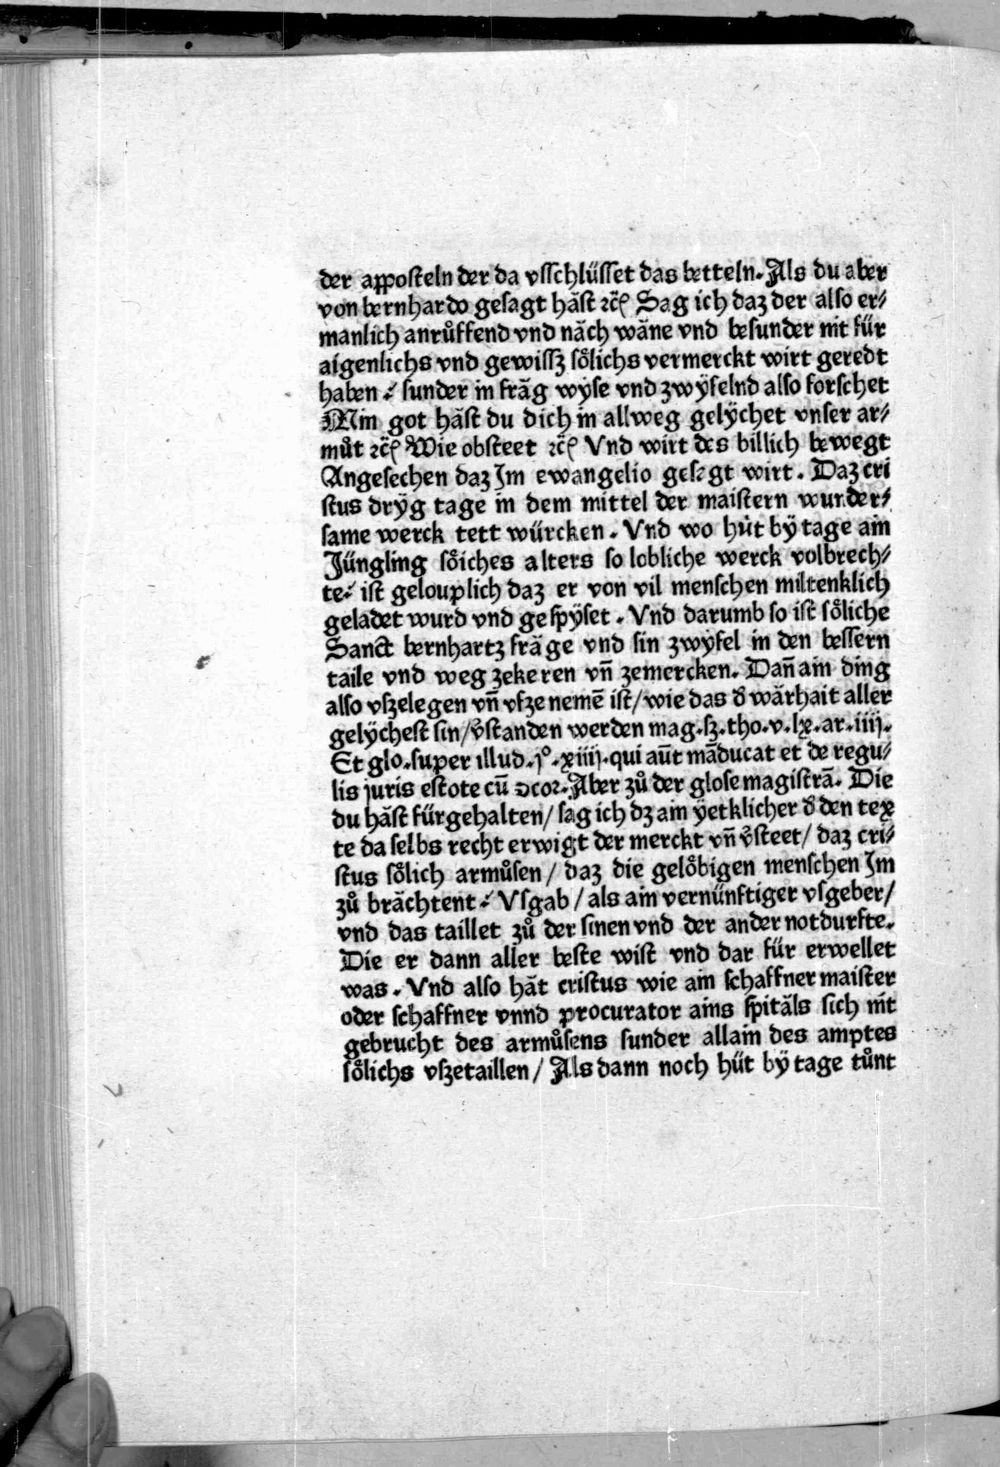 der apposteln der da vsschlüsset das betteln. Als du aber
von bernhardo gesagt hāst ⁊c̄ Sag ich daz der also er⸗
manlich anrůffend vnd nāch wāne vnd besunder nit für
aigenlichs vnd gewissz sőlichs vermerckt wirt geredt
haben ⸗ sunder in frāg wyse vnd zwÿfelnd also forschet
Min got hāst du dich in allweg gelÿchet vnser ar⸗
můt ⁊c̄ Wie obsteet ⁊c̄ Vnd wirt des billich bewegt
Angesechen daz Im ewangelio gesagt wirt. Daz cri
stus drÿg tage in dem mittel der maistern wunder⸗
same werck tett würcken. Vnd wo hüt bÿ tage ain
Jüngling sőiches alters so lobliche werck volbrech⸗
te⸗ ist gelouplich daz er von vil menschen miltenklich
geladet wurd vnd gespÿset. Vnd darumb so ist sőliche
Sanct bernhartz frāge vnd sin zwÿfel in den bessern
taile vnd weg zekeren vn̄ zemercken. Dan̄ ain ding
also vszelegen vn̄ vfzenemē ist/ wie das d̕ wārhait aller
gelÿchest sin/ v̕standen werden mag. sz. tho. v. lx. ar. iiij.
Et glo. super illud. jo. xiiij. qui aūt māducat et de regu⸗
lis juris estote cū ꝯcor. Aber zů der glose magistrā. Die
du hāst fürgehalten/ sag ich dz ain ÿetklicher d̕ den tex
te da selbs recht erwigt der merckt vn̄ v̕steet/ daz cri⸗
stus sőlich armůsen/ daz die gelőbigen menschen Im
zů brāchtent⸗ Vsgab/ als ain vernünftiger vsgeber/
vnd das taillet zů der sinen vnd der ander notdurfte.
Die er dann aller beste wist vnd dar für erwellet
was. Vnd also hāt cristus wie ain schaffner maister
oder schaffner vnnd procurator ains spitāls sich nit
gebrucht des armůsens sunder allain des amptes
sőlichs vszetaillen/ Als dann noch hüt bÿ tage tůnt